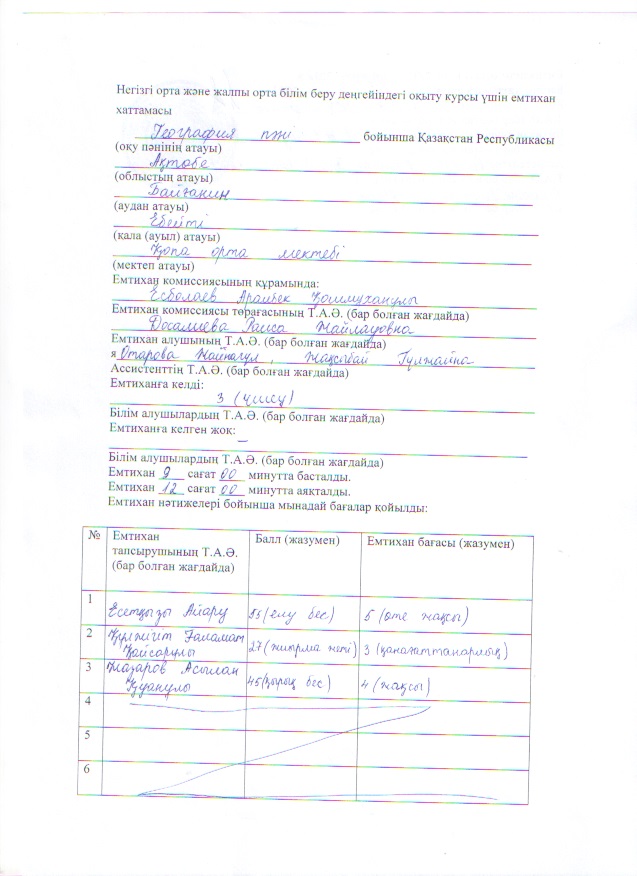 Негізгі орта және жалпы орта білім беру деңгейіндегі оқыту курсы үшін емтихан
хаттамасы
География пәні бойынша Қазақстан Республикасы
(оқу пәнінің атауы)
Ақтөбе
(облыстың атауы)
Байганин
(аудан атауы)
Ебейті
(қала (ауыл) атауы)
Қопа орта мектебі
(мектеп атауы)
Емтихан комиссиясының құрамында:
Есболаев Арайбек Қошмуханұлы
Емтихан комиссиясы төрағасының Т.А.Ә. (бар болған жағдайда)
Досалиева Раиса Жайлауовна
Емтихан алушының Т.А.Ә. (бар болған жағдайда)
я Отарова Жайнагул, Жақсыбай Гүлжайна
Ассистенттің Т.А.Ә. (бар болған жағдайда)
Емтиханға келді:
3 (үшеу)
Білім алушылардың Т.А.Ә. (бар болған жағдайда)
Емтиханға келген жоқ: –
Білім алушылардың Т.А.Ә. (бар болған жағдайда)
Емтихан 9 сағат 00 минутта басталды.
Емтихан 12 сағат 00 минутта аяқталды.
Емтихан нәтижелері бойынша мынадай бағалар қойылды:
№ Емтихан тапсырушының Т.А.Ә. (бар болған жағдайда) Балл (жазумен) Емтихан бағасы (жазумен)
1 Есетқызы Айару 55 (елу бес) 5 (өте жақсы)
2 Құлжігіт Ғаламат Қайсарұлы 27 (жиырма жеті) 3 (қанағаттанарлық)
3 Назаров Асылан Қуанұлы 45 (қырық бес) 4 (жақсы)
4
5
6